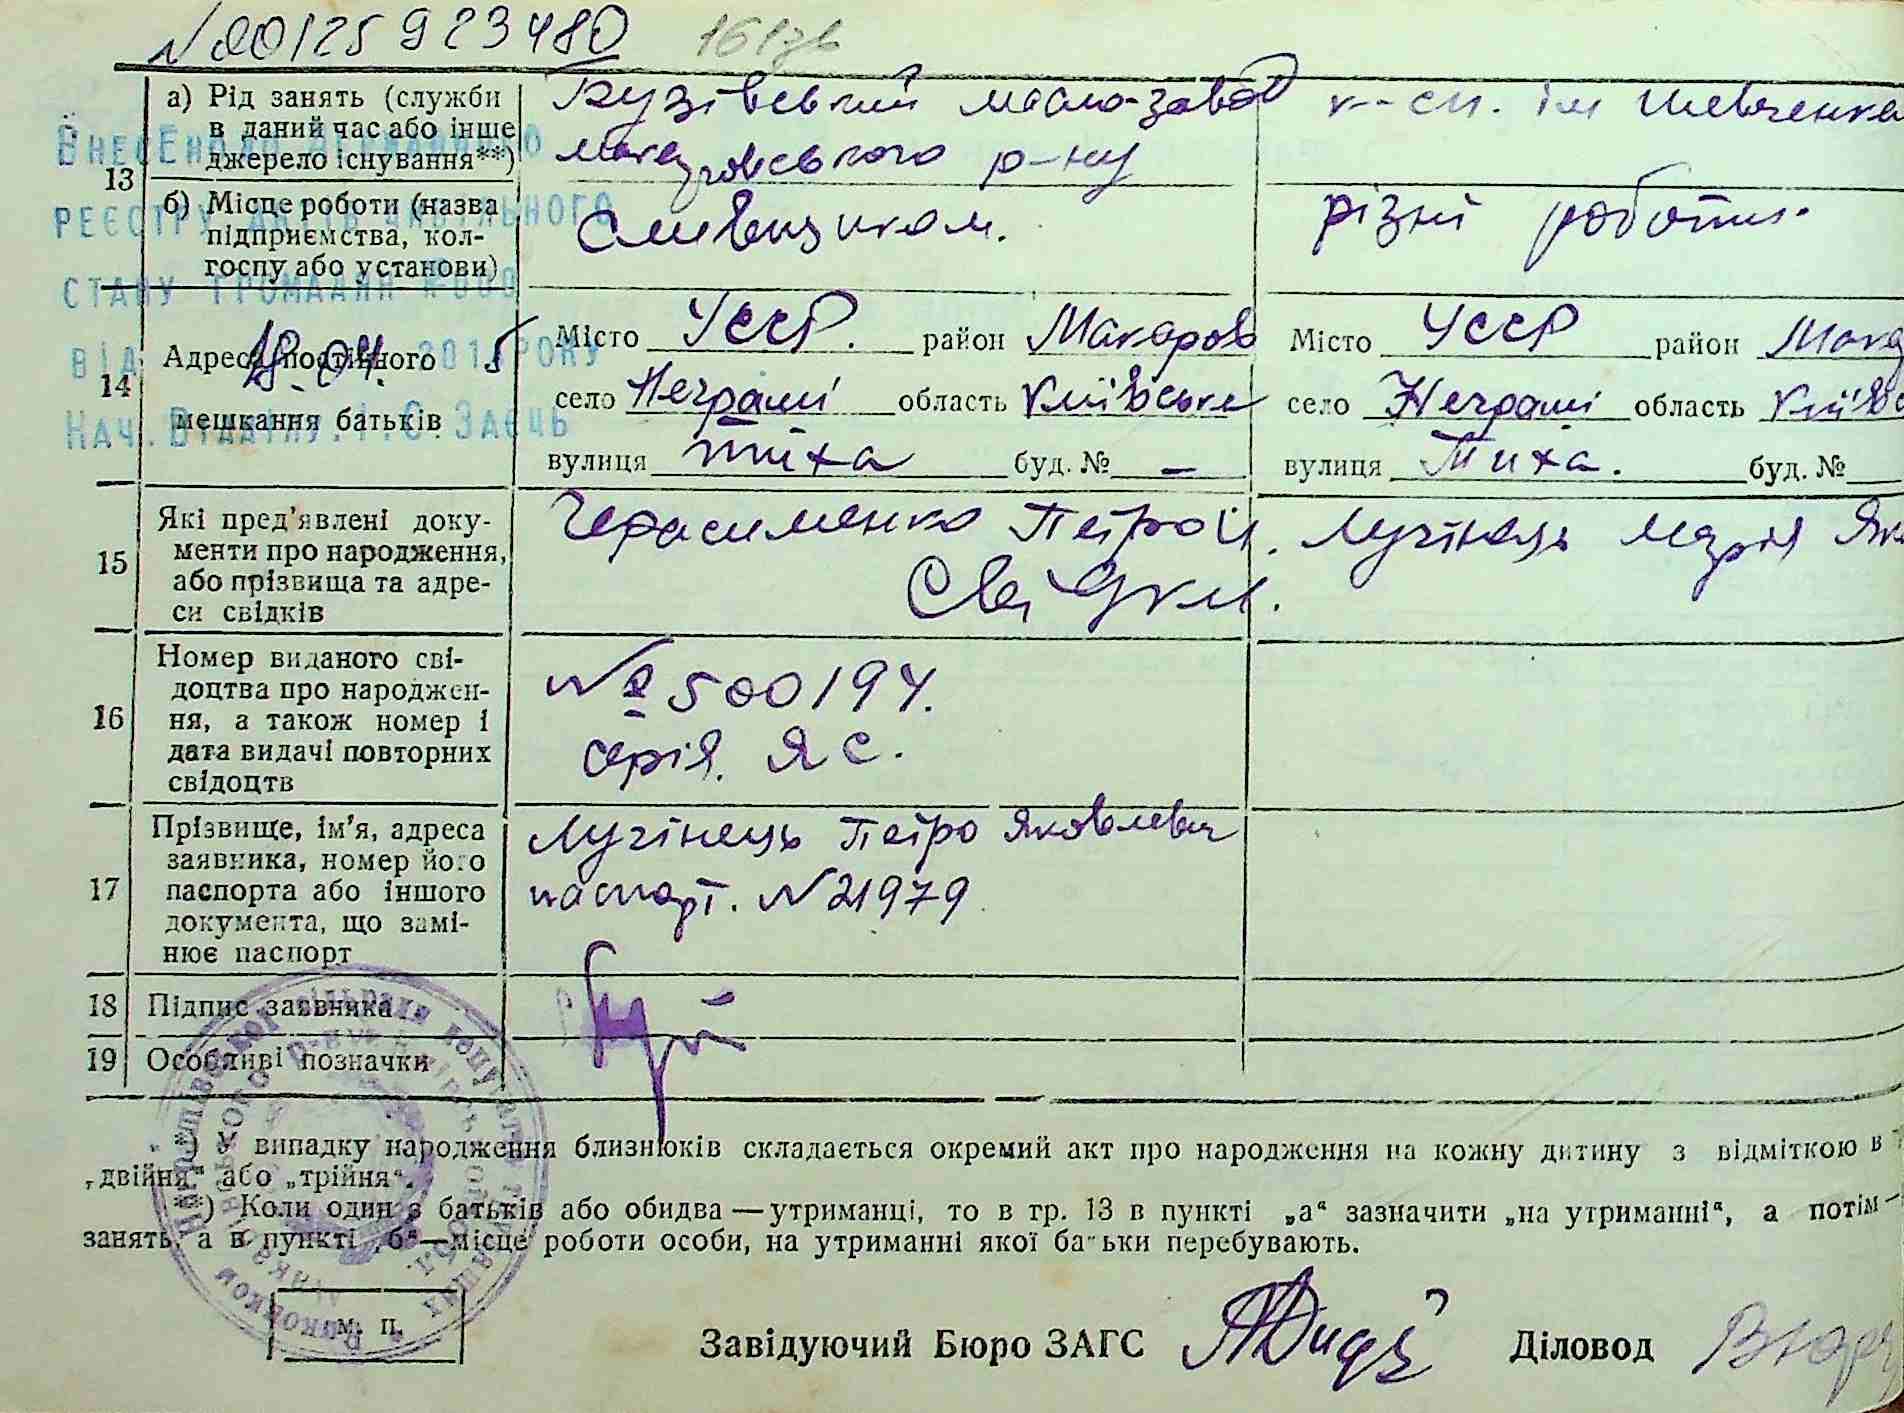 №00125923480
13 а) Рід занять (служби
в даний час або інше
джерело існування**)
Бузівський масло-завод
Макарівського р-ну
к-сп. ім Шевченка
б) Місце роботи (назва
підприємства, кол-
госпу або установи)
різні роботи.
Внесено до Державного
реєстру актів цивільного
стану громадян
від 18.04. 2015 року
Нач. Відділу. І.С Заєць
14 Адреса постійного
мешкання батьків
Місто УССР. район Макаров
село Неграші область Київська
вулиця Тиха буд. № –
Місто УССР район Мака
село Неграші область Київс
вулиця Тиха. буд. №
15 Які пред'явлені доку-
менти про народження,
або прізвища та адре-
си свідків
Герасименко Петро Й. Лучінець Марія Як
Свідки.
16 Номер виданого сві-
доцтва про народжен-
ня, а також номер і
дата видачі повторних
свідоцтв
№ 500194.
серія. ЯС.
17 Прізвище, ім'я, адреса
заявника, номер його
паспорта або іншого
документа, що замі-
нює паспорт
Лучінець Петро Яковлевич
паспорт. №21979
18 Підпис заявника
19 Особливі позначки
*) У випадку народження близнюків складається окремий акт про народження на кожну дитину з відміткою в
„двійня“ або „трійня“.
**) Коли один з батьків або обидва — утриманці, то в гр. 13 в пункті „а“ зазначити „на утриманні“, а потім —
занять, а в пункті „б“—місце роботи особи, на утриманні якої батьки перебувають.
м. п.
Завідуючий Бюро ЗАГС
Діловод